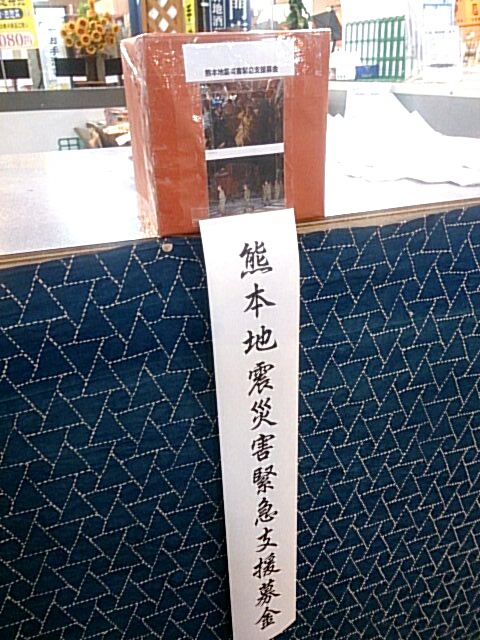 080円
地酒
熊本地震災害緊急支援募金
熊本地震災害緊急支援募金